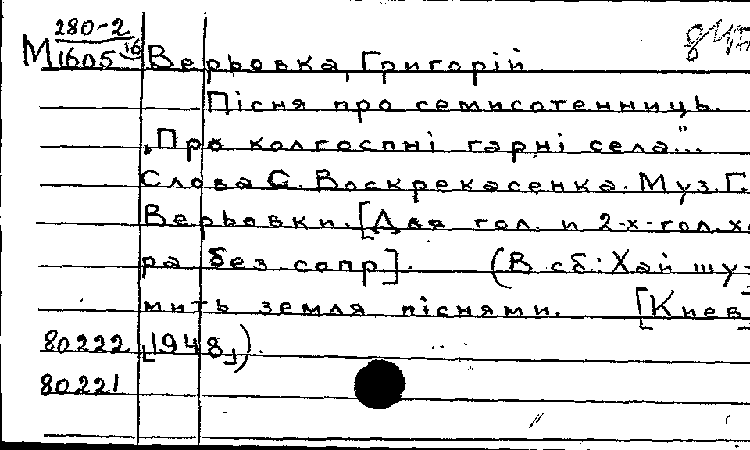 280-2
М1605 16 Верьовка, Григорій 845
Пісня про семисотенниць.
„Про колгоспні гарні села"...
Слова С. Воскрекасенка. Муз. Г.
Верьовки. [Для гол. и 2-х-гол. хо
ра без сопр]. (В сб.: Хай шу-
мить земля піснями. [Киев,
80222 1948])
80221